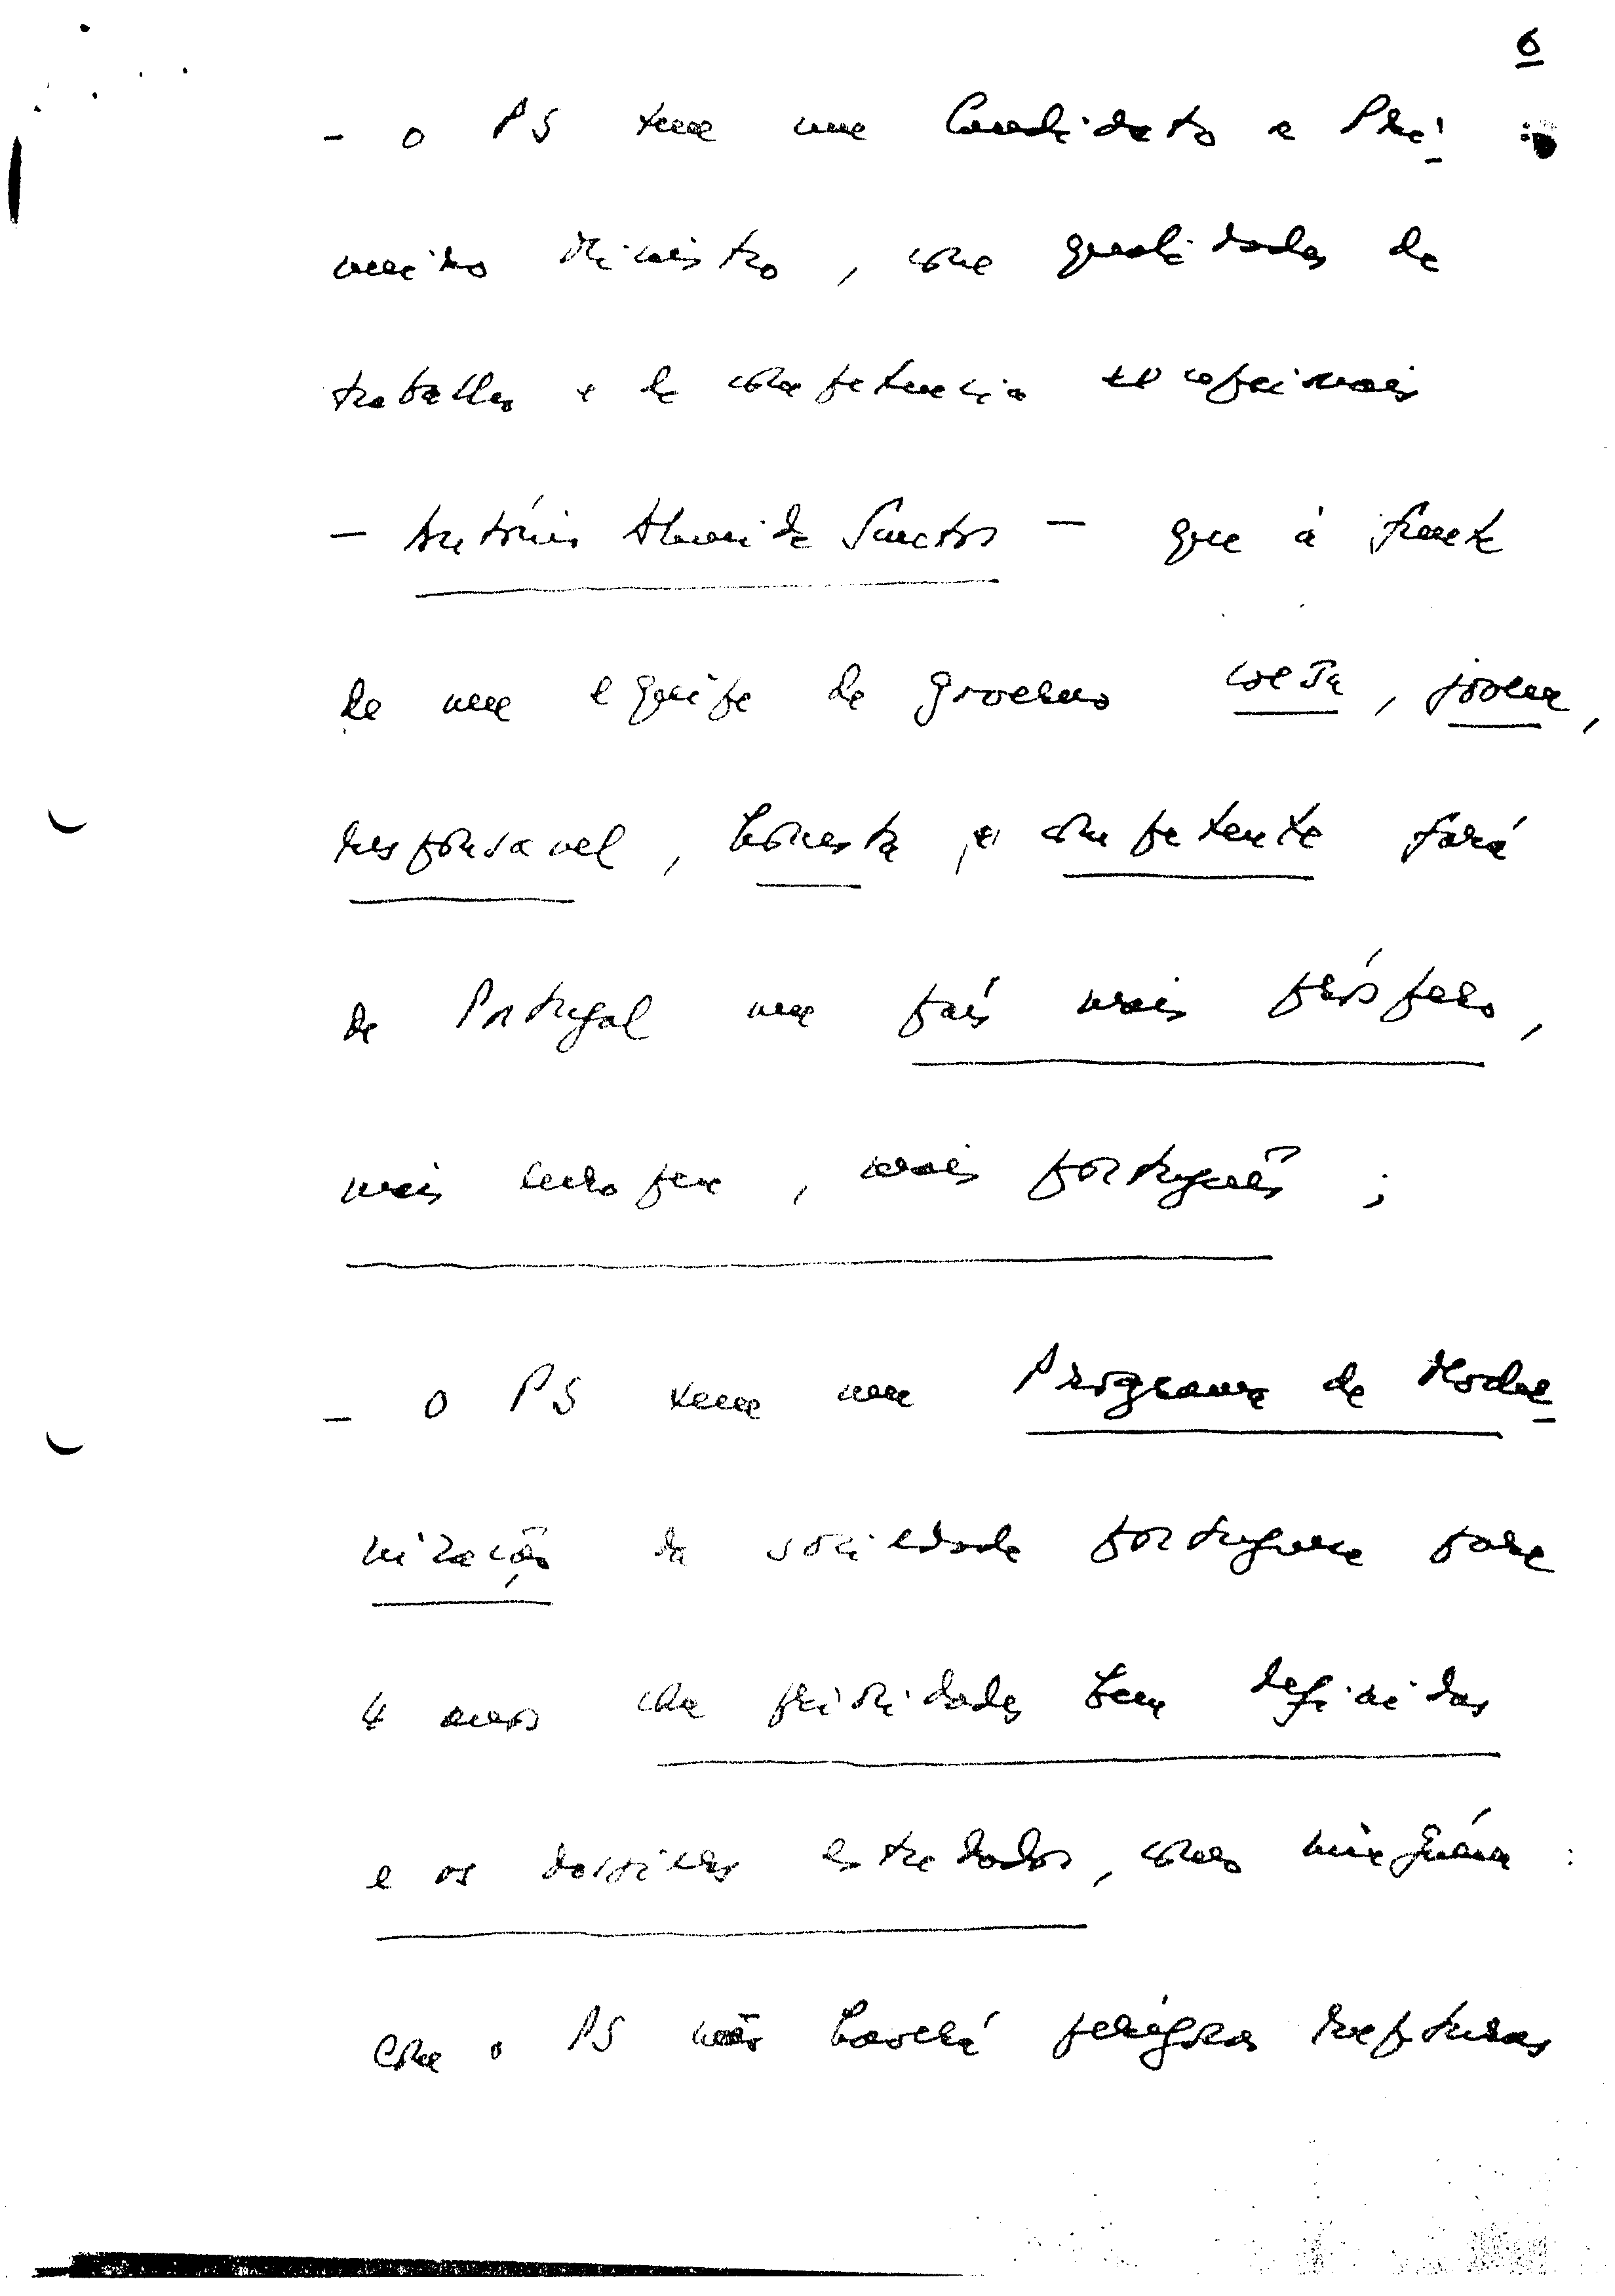 6
- o PS tem um Candidato a Pri-
meiro Ministro, com qualidades de
trabalho e de competencia excepcionais
- António Almeida Santos - que à frente
de uma equipe de governo coesa, jovem,
responsavel, honesta e competente fará
de Portugal um país mais próspero,
mais europeu, mais português;
- o PS tem um Programa de Moder-
nização da sociedade portuguesa para
4 anos com prioridades bem definidas
e os dossiers estudados, como ninguém:
com o PS não haverá perigosas rupturas